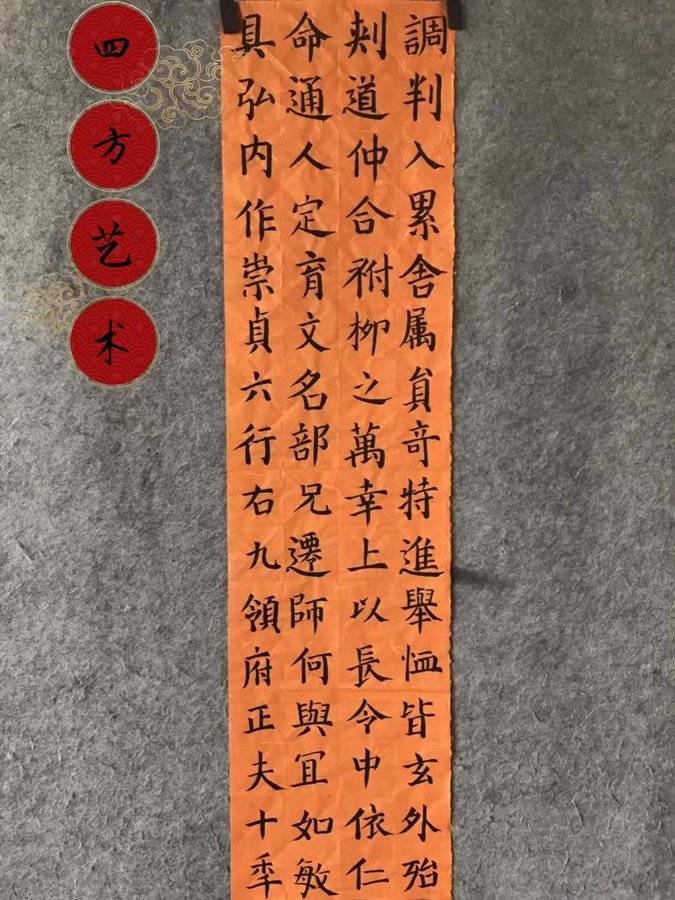 調判入累舍属員奇特進舉恤皆玄外殆
刾道仲合祔柳之萬幸上以長令中依仁
命通人定育文名部兄遷師何與冝如敏
具弘内作崇貞六行右九領府正夫十秊
四方艺术